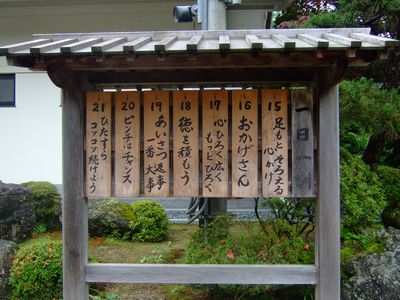 一日一
15 足もとそろえる
心がけ
16 おかげさん
17 心ひろく広く
もっとひろく
18 徳を積もう
19 あいさつ返事
一番大事
20 ピンチはチャンス
21 ひたすら
コツコツ続けよう